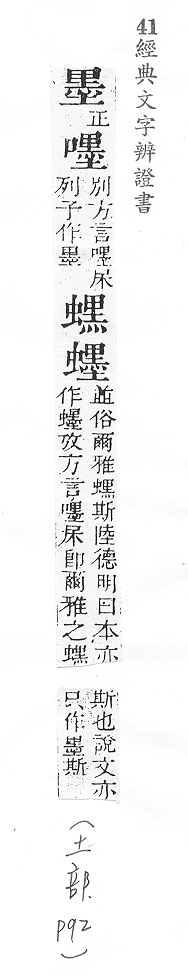 41經典文字辨證書
墨
正
嚜
別方言嚜杘
列子作墨
蟔䘃
竝俗爾雅蟔斯陸德明曰本亦
作䘃攷方言嚜杘即爾雅之蟔
斯也說文亦
只作墨斯
(土部 P92)